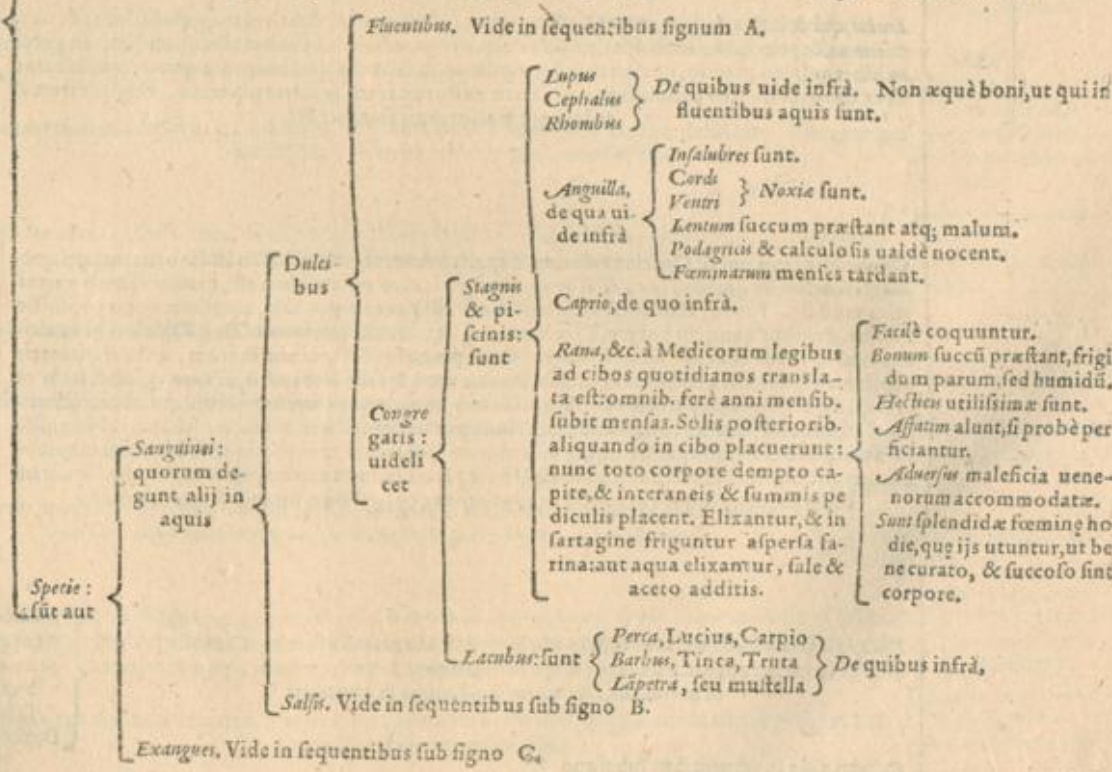 Fluentibus. Vide in sequentibus signum A.
Lupus
Cephalus
Rhombus
De quibus uide infrà. Non æquè boni, ut qui in
fluentibus aquis sunt.
Anguilla,
de qua ui-
de infrà
Insalubres sunt.
Cordi
Ventri
Noxiæ sunt.
Lentum succum præstant atq; malum.
Podagricis & calculosis ualdè nocent.
Fœminarum menses tardant.
Dulci
bus
Stagnis
& pi-
scinis:
sunt
Caprio, de quo infrà.
Rana, &c. à Medicorum legibus
ad cibos quotidianos transla-
ta est: omnib. ferè anni mensib.
subit mensas. Solis posteriorib.
aliquando in cibo placuerunt:
nunc toto corpore dempto ca-
pite, & interaneis & summis pe
diculis placent. Elixantur, & in
sartagine friguntur aspersa fa-
rina: aut aqua elixantur, sale &
aceto additis.
Facilè coquuntur.
Bonum succū præstant, frigi
dum parum, sed humidū.
Hecticis utilissimæ sunt.
Affatim alunt, si probè per
ficiantur.
Aduersus maleficia uene-
norum accommodatæ.
Sunt splendidæ fœminę ho
die, quę ijs utuntur, ut be
ne curato, & succoso sint
corpore.
Congre
gatis:
uideli
cet
Sanguinei:
quorum de-
gunt alij in
aquis
Specie:
sūt aut
Lacubus: sunt
Perca, Lucius, Carpio
Barbus, Tinca, Truta
Lāpetra, seu mustella
De quibus infrà.
Salsis. Vide in sequentibus sub signo B.
Exangues. Vide in sequentibus sub signo C.